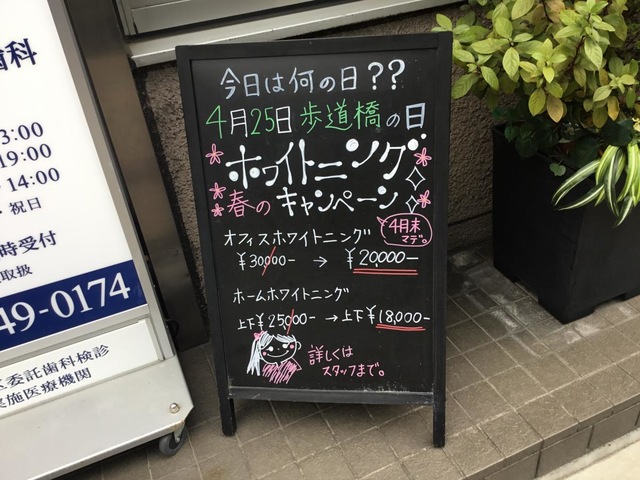 歯科
3:00
19:00
14:00
・祝日
時受付
取扱
49-0174
区委託歯科検診
実施医療機関
今日は何の日??
4月25日歩道橋の日
ホワイトニング
春のキャンペーン
4月末
マデ。
オフィスホワイトニング
¥30000- → ¥20,000-
ホームホワイトニング
上下¥25,000- → 上下¥18,000-
詳しくは
スタッフまで。